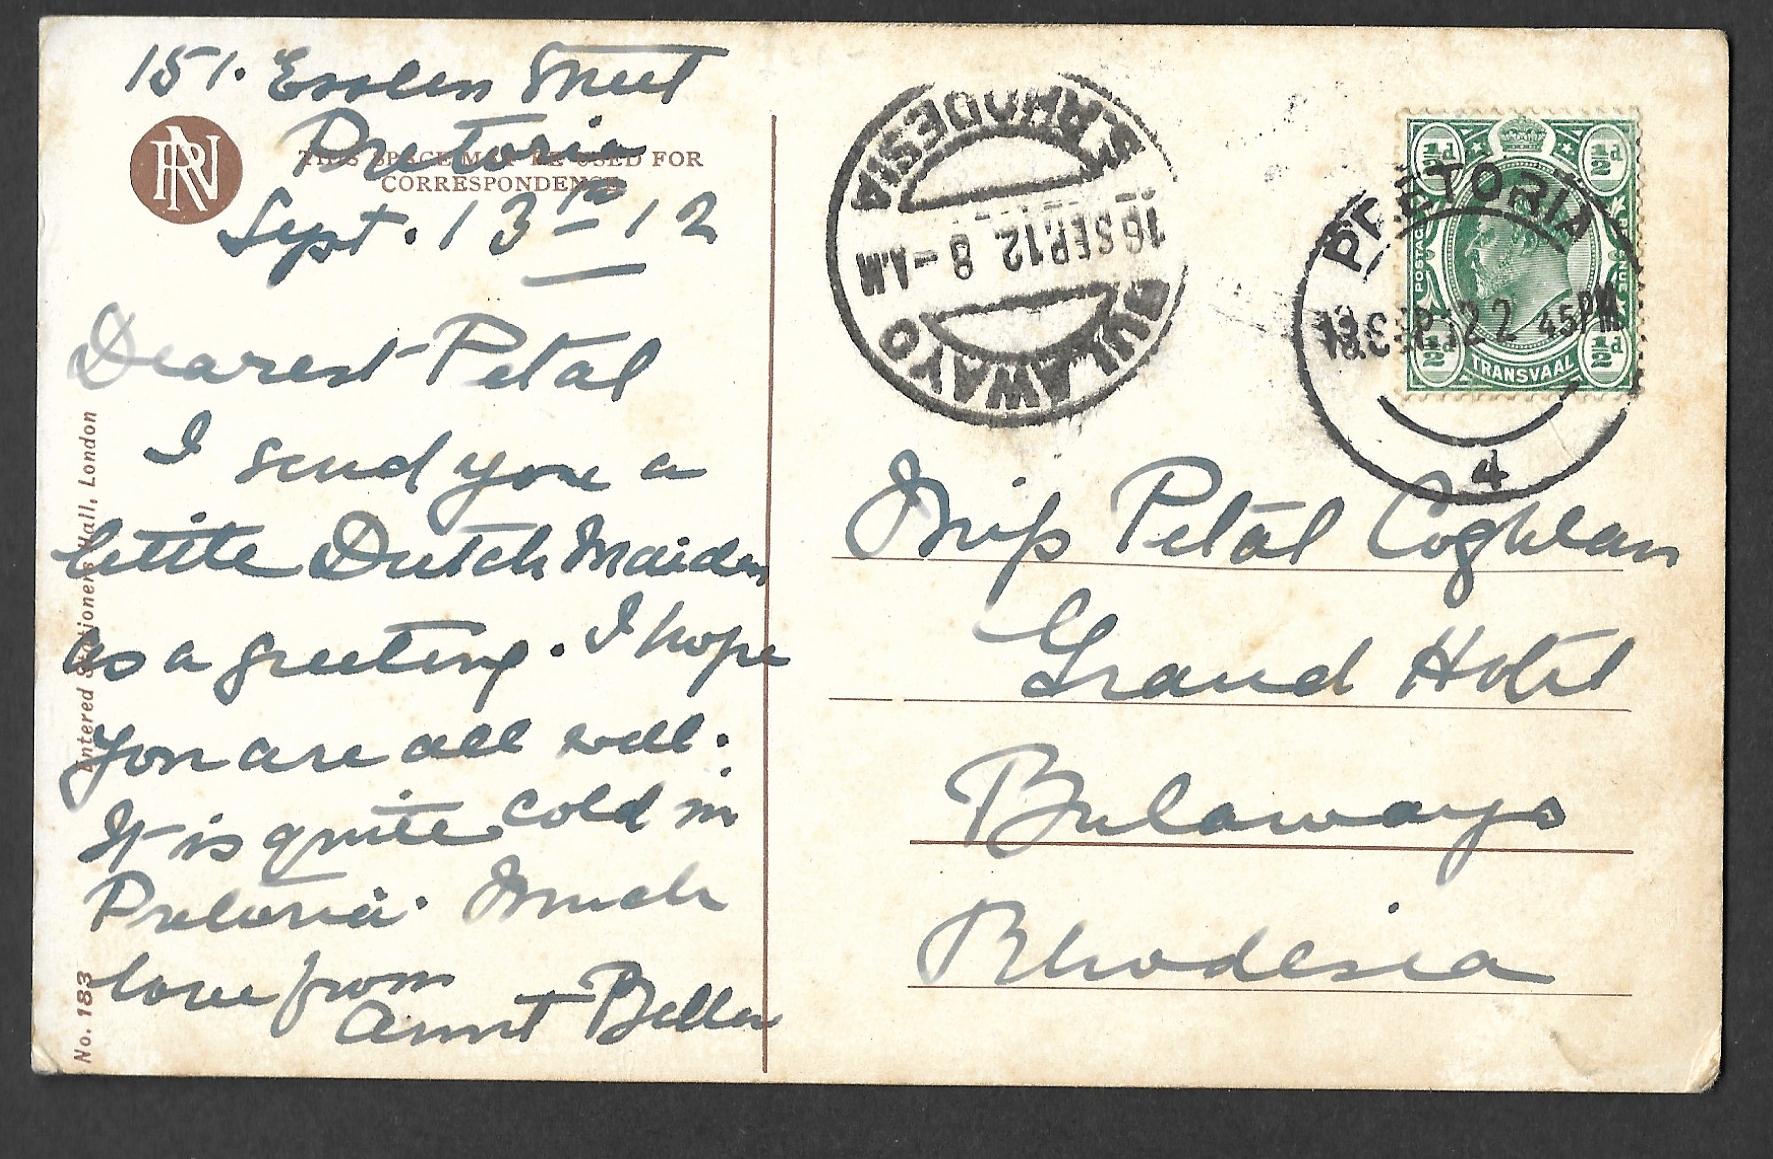 151. Esslen Street
Pretoria
Sept. 13th 12
RN
THIS SPACE MAY BE USED FOR
CORRESPONDENCE
Dearest Petal
I send you a
little Dutch Maiden
as a greeting. I hope
you are all well.
It is quite cold in
Pretoria. Much
love from
Aunt Bella
Entered Stationers Hall, London
No. 183
S. RHODESIA
16 SEP. 12. 8 - A.M
BULAWAYO
PRETORIA
SEP 12 2 45PM
4
½d ½d
POSTAGE
REVENUE
½d ½d
TRANSVAAL
Miss Petal Coghlan
Grand Hotel
Bulawayo
Rhodesia